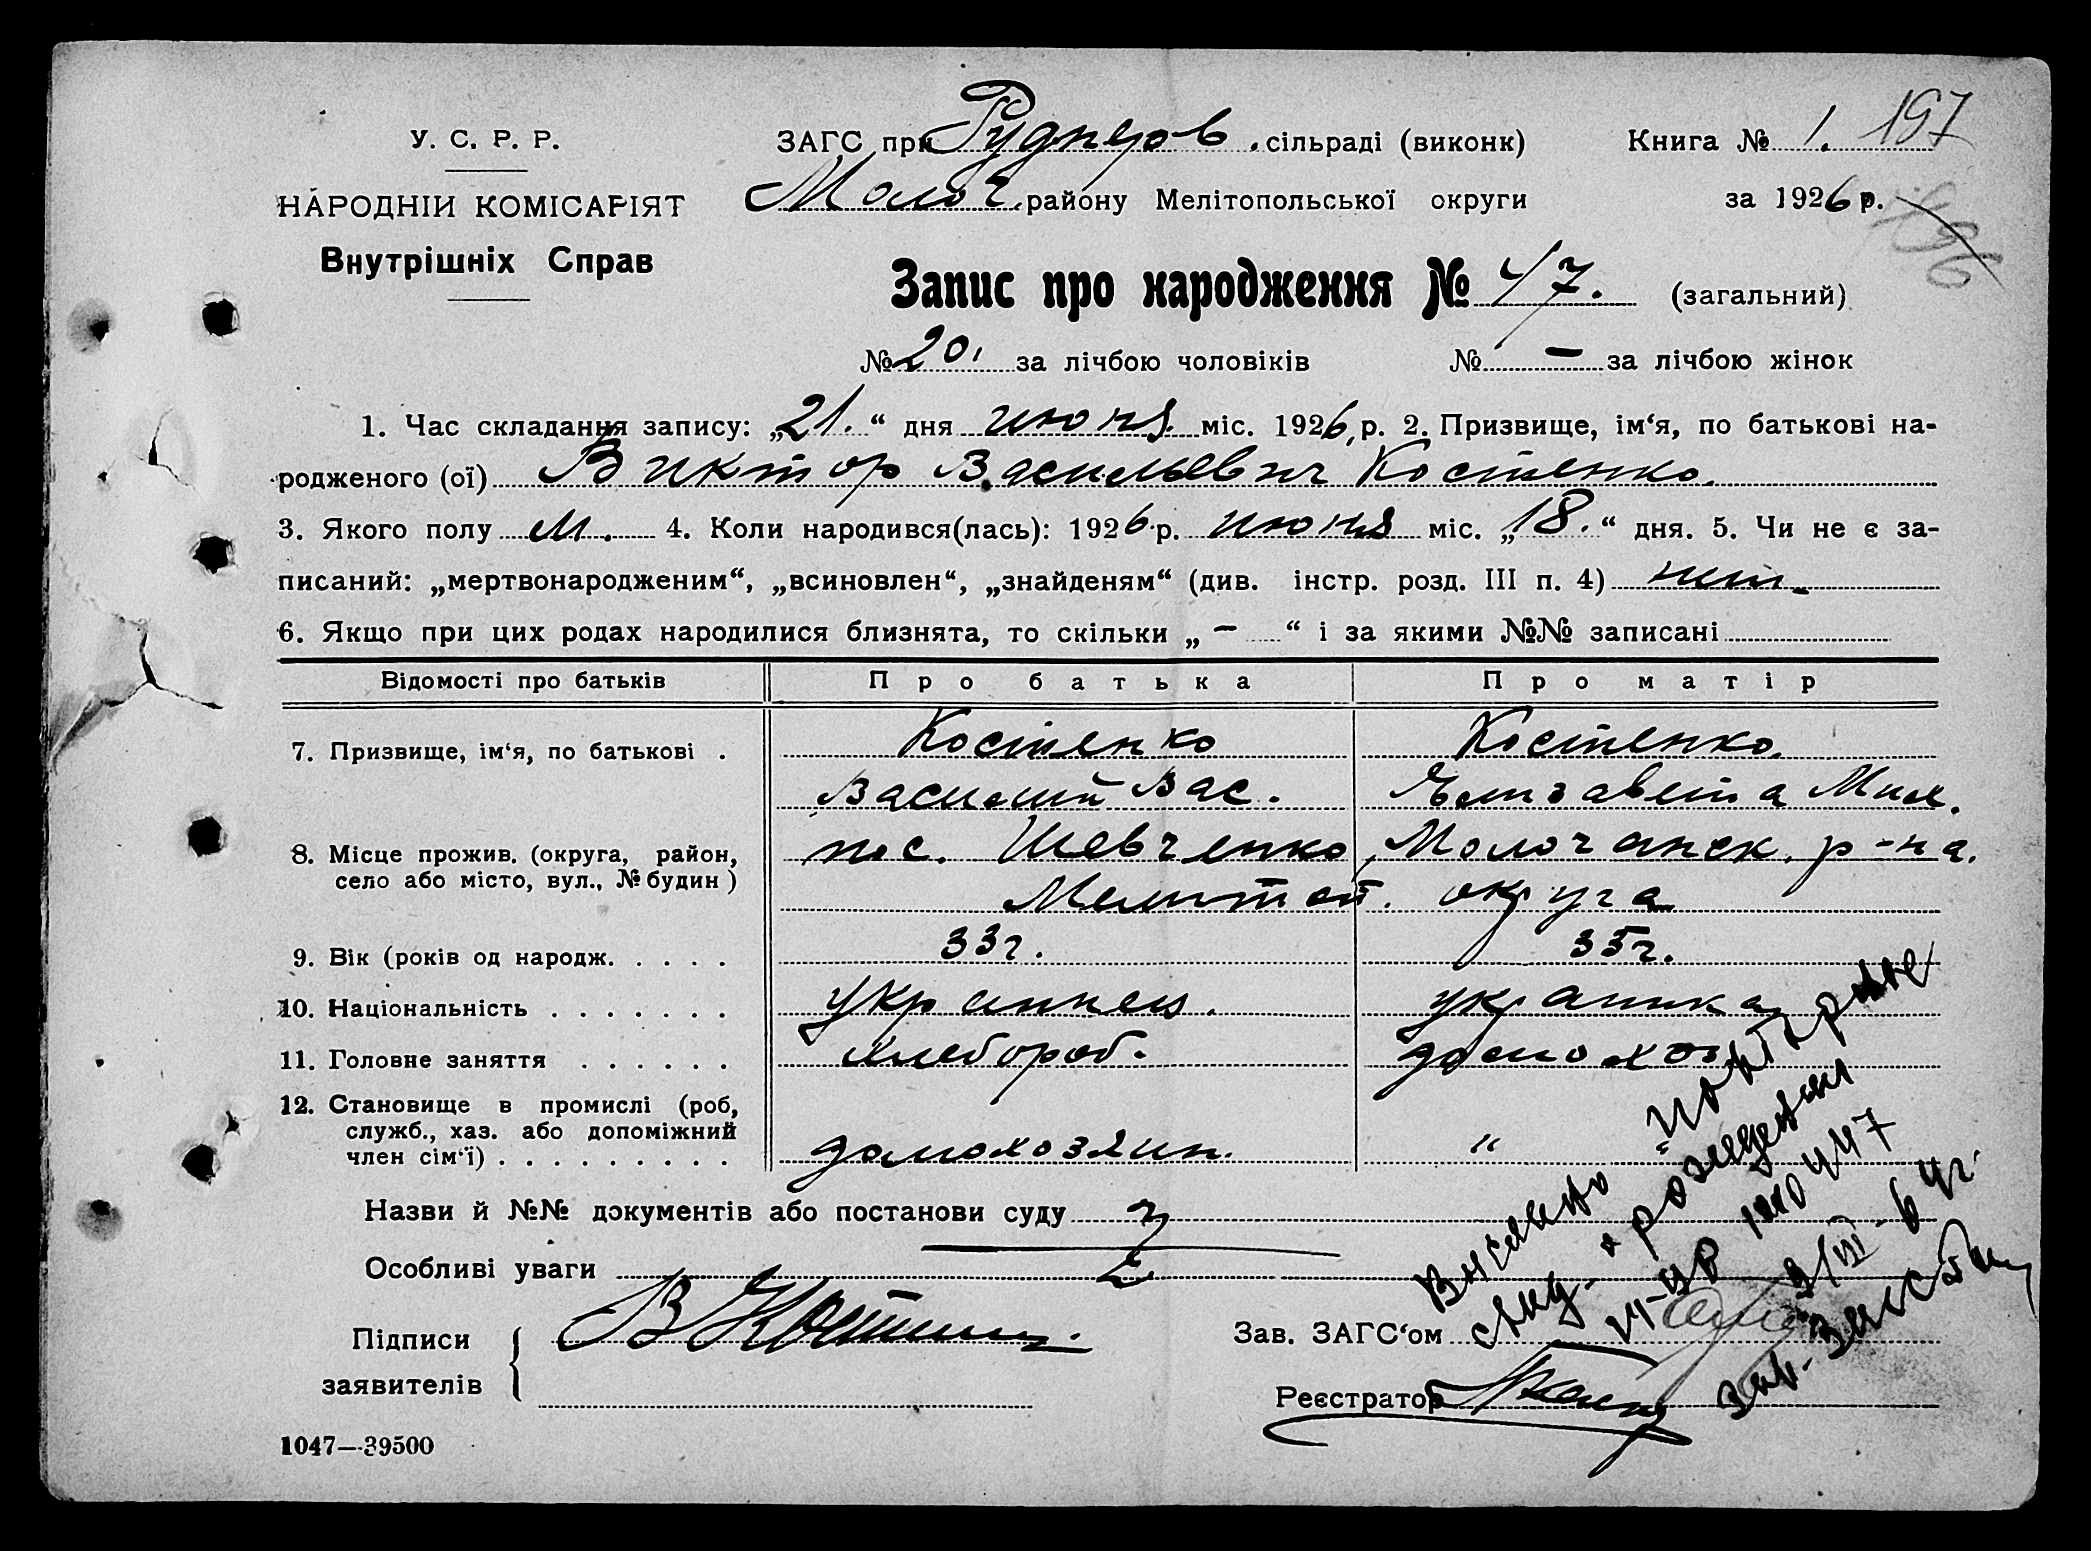 У. С. Р. Р.
НАРОДНІЙ КОМІСАРІЯТ
Внутрішніх Справ
ЗАГС при сільраді (виконк)
Молоч. району Мелітопольської округи
Книга № 1. 197
за 1926 р.
Запис про народження № 47. (загальний)
№ 20. за лічбою чоловіків № — за лічбою жінок
1. Час складання запису: „21.“ дня июня міс. 1926 р. 2. Призвище, ім‘я, по батькові на-
родженого (ої) Виктор Васильевич Костенко.
3. Якого полу м. 4. Коли народився(лась): 1926 р. июня міс. „18.“ дня. 5. Чи не є за-
писаний: „мертвонародженим“, „всиновлен“, „знайденям“ (див. інстр. розд. III п. 4) нет.
6. Якщо при цих родах народилися близнята, то скільки „ — “ і за якими №№ записані
Відомості про батьків Про батька Про матір
7. Призвище, ім‘я, по батькові . Костенко Костенко.
Василий Вас. Елизавета Мих.
8. Місце прожив. (округа, район, пос. Шевченко, Молочанск. р-на.
село або місто, вул., № будин) Мелитоп. округа
9. Вік (років од народж. . . . . 33 г. 35 г.
10. Національність . . . . . . . украинец. украинка
11. Головне заняття . . . . . . хлебороб. домохоз
12. Становище в промислі (роб,
служб., хаз. або допоміжний
член сім‘ї) . . . . . . . . . домохозяин. „ „
Назви й №№ документів або постанови суду
Особливі уваги
Підписи
заявителів
Зав. ЗАГС‘ом
Реєстратор
1047—39500
Выслано повторное
свид. о рождении